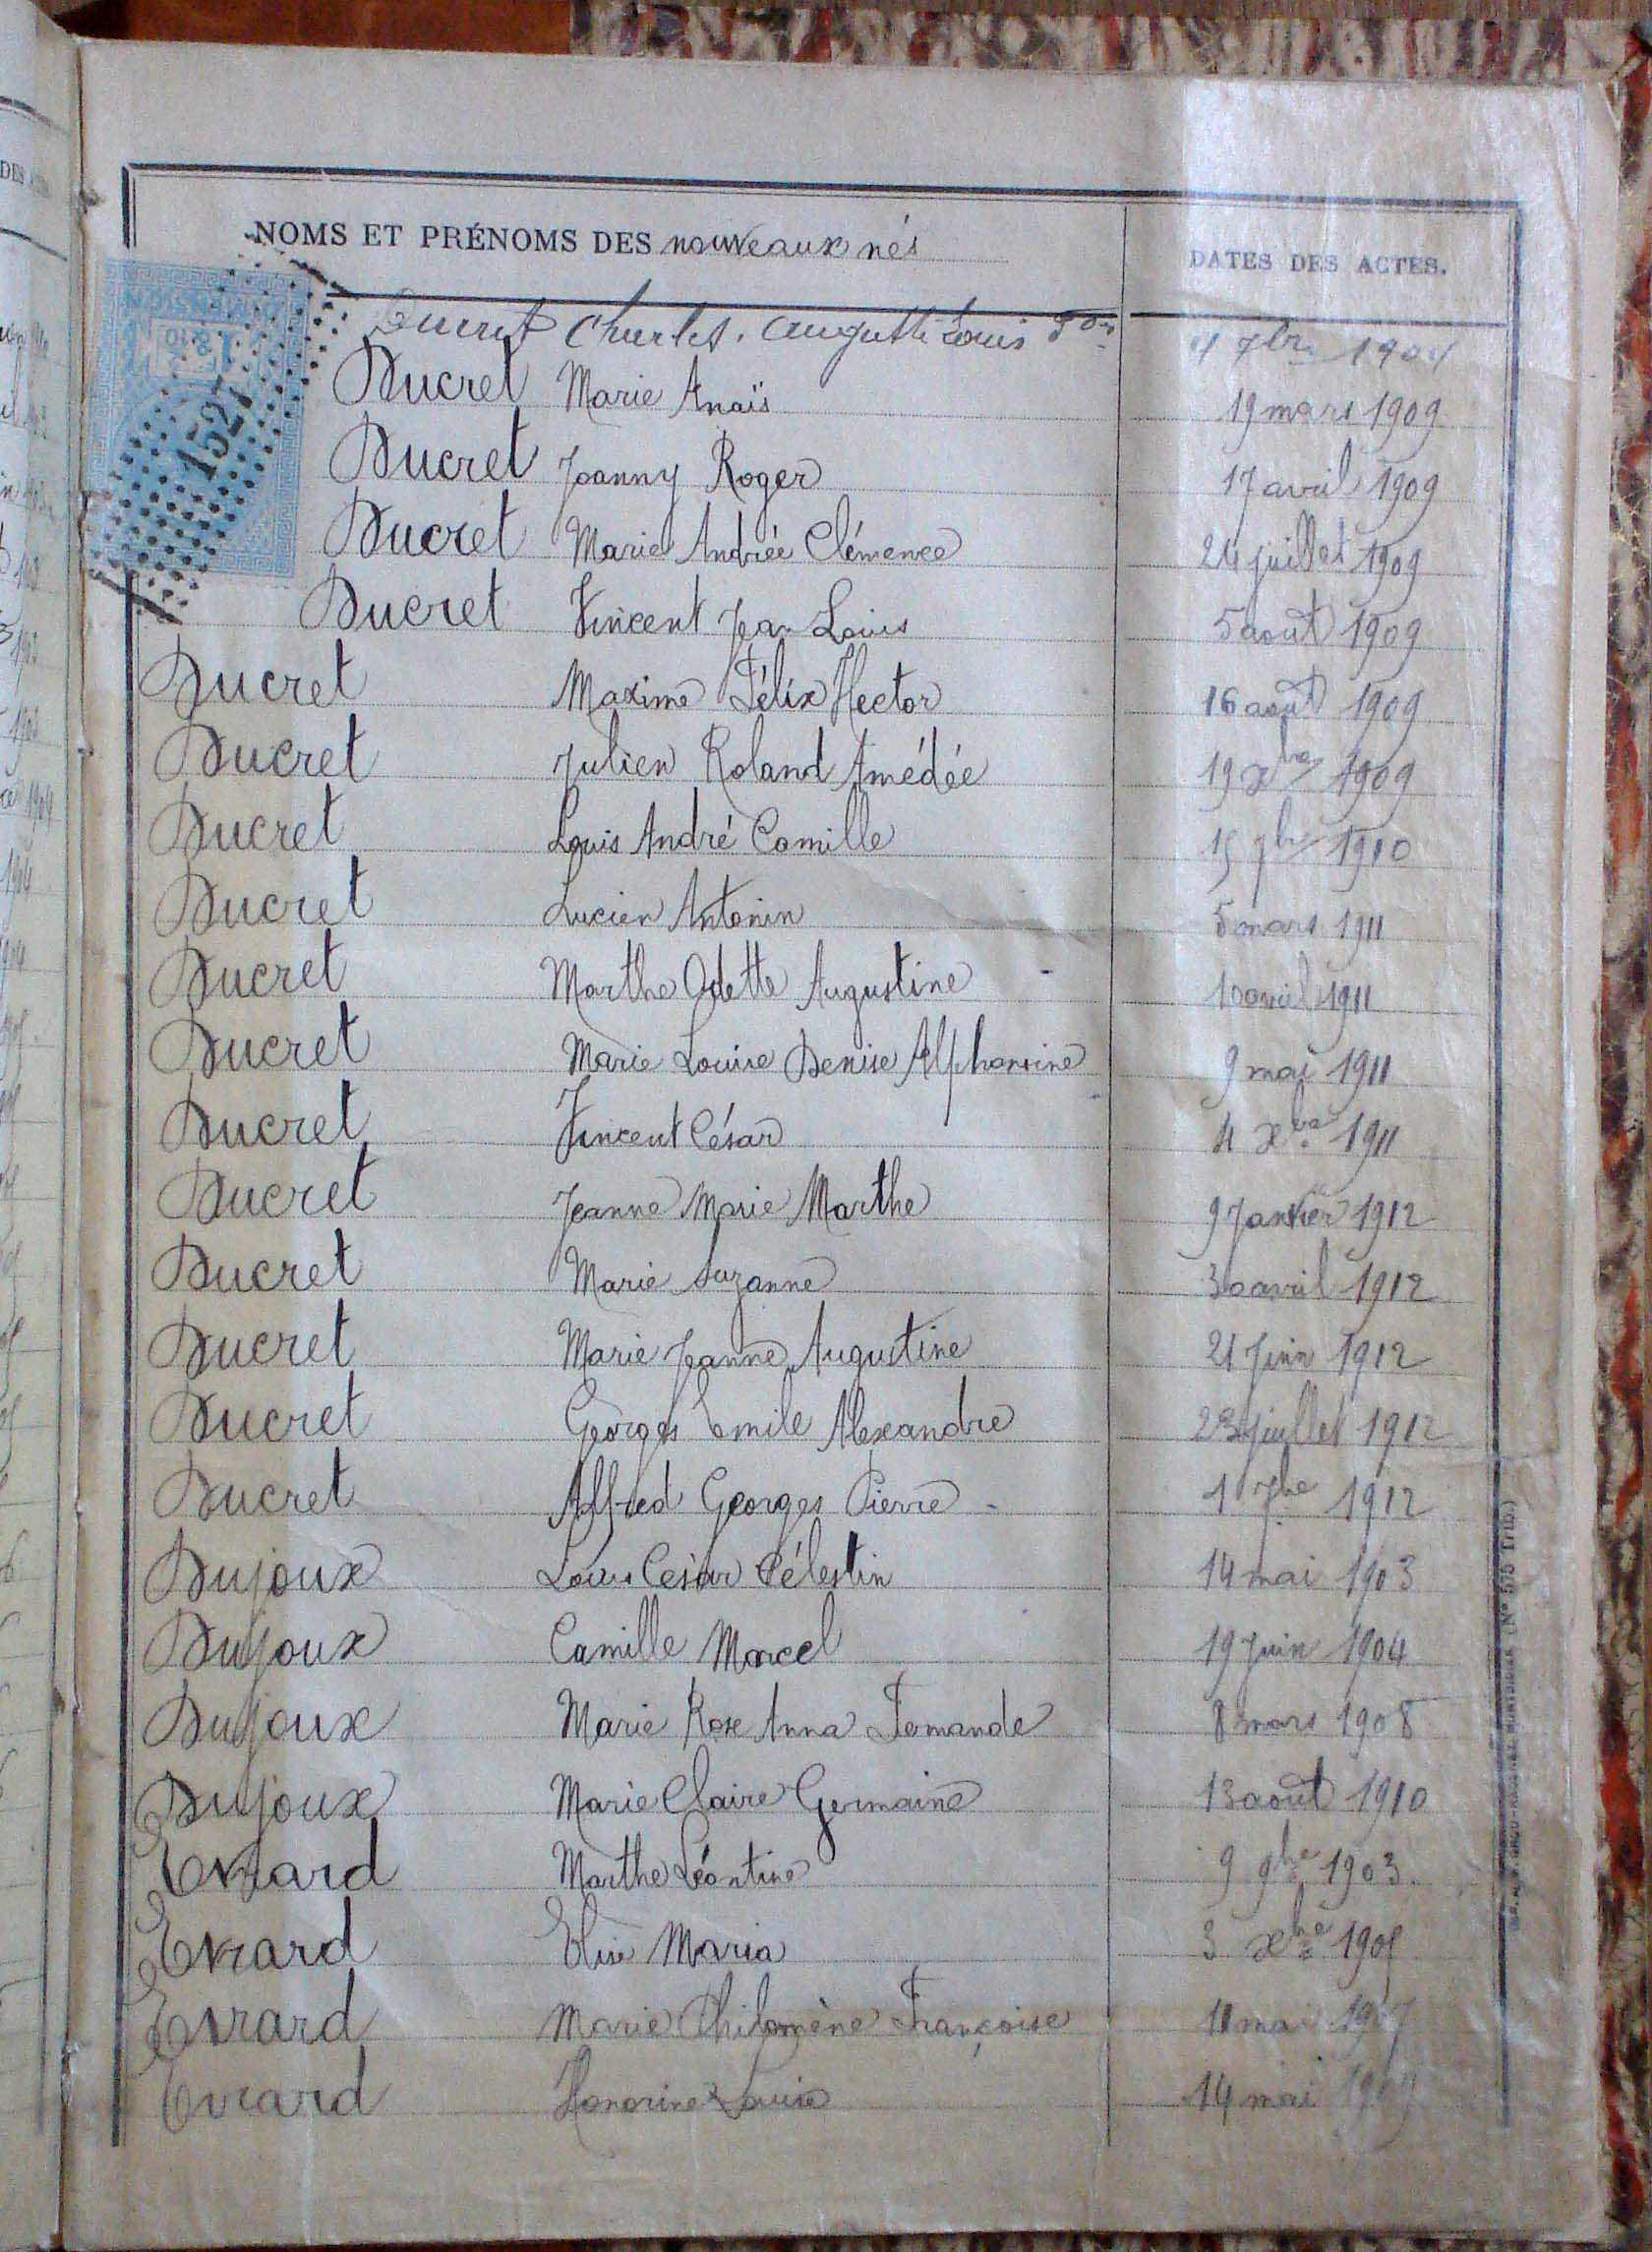 NOMS ET PRÉNOMS DES nouveaux nés
DATES DES ACTES.
Ducret Charles. Auguste Louis 7bre 1904
Ducret Marie Anaïs 19 mars 1909
Ducret Joanny Roger 17 avril 1909
Ducret Marie Andrée Clémence 24 juillet 1909
Ducret Vincent Jean Louis 5 août 1909
Ducret Maxime Félix Hector 16 août 1909
Ducret Julien Roland Amédée 19 xbre 1909
Ducret Louis André Camille 15 1910
Ducret Lucien Antonin 5 mars 1911
Ducret Marthe Odette Augustine 10 avril 1911
Ducret Marie Louise Denise Alphonsine 9 mai 1911
Ducret Vincent César 4 xbre 1911
Ducret Jeanne Marie Marthe 9 Janvier 1912
Ducret Marie Suzanne 30 avril 1912
Ducret Marie Jeanne Augustine 21 Juin 1912
Ducret Georges Emile Alexandre juillet 1912
Ducret Alfred Georges Pierre 1 7bre 1912
Dujoux Louis César Célestin 14 mai 1903
Dujoux Camille Marcel 19 Juin 1904
Dujoux Marie Rose Anna Fernande 8 mars 1908
Dujoux Marie Claire Germaine 13 août 1910
Evrard Marthe Léontine 9 9bre 1903.
Evrard Elise Maria 3 xbre
Evrard Marie Philomène Françoise mai 1907
Evrard Honorine Louise 14 mai
1527
(N° 515 Trib.)